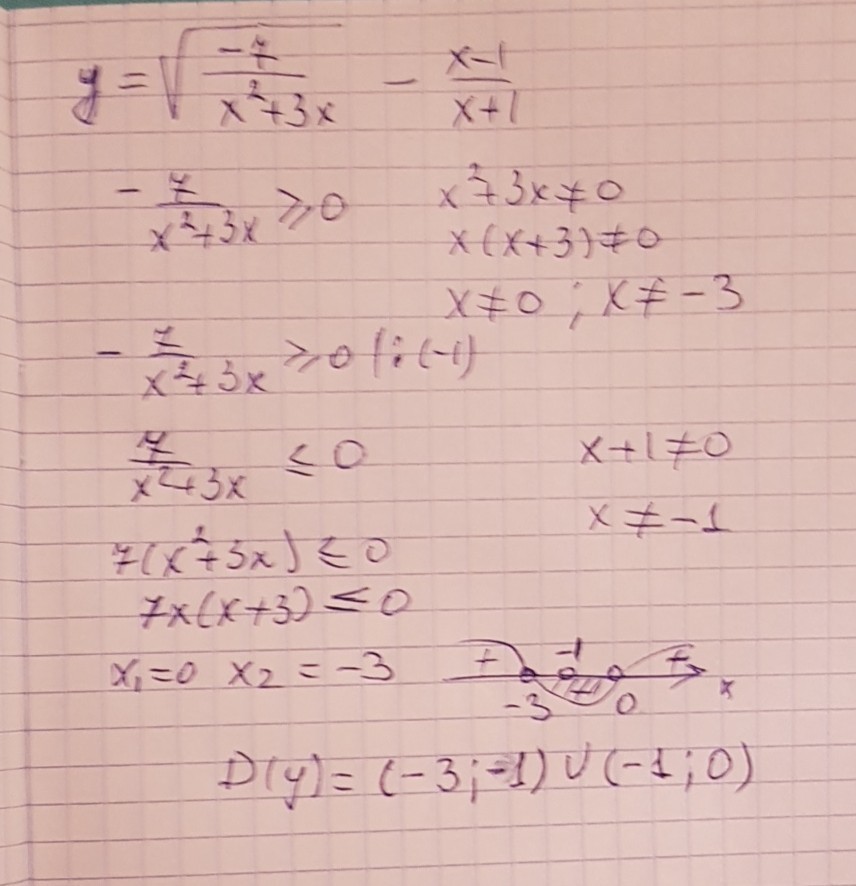 y = √(-7/(x²+3x)) - (x-1)/(x+1)
-7/(x²+3x) ⩾ 0    x²+3x ≠ 0
x(x+3) ≠ 0
x ≠ 0 ; x ≠ -3
-7/(x²+3x) ⩾ 0 |:(-1)
7/(x²+3x) ≤ 0    x+1 ≠ 0
x ≠ -1
7(x²+3x) ≤ 0
7x(x+3) ≤ 0
x₁=0 x₂ = -3    + -1 + x
-3 0
D(y) = (-3;-1) ∪ (-1;0)